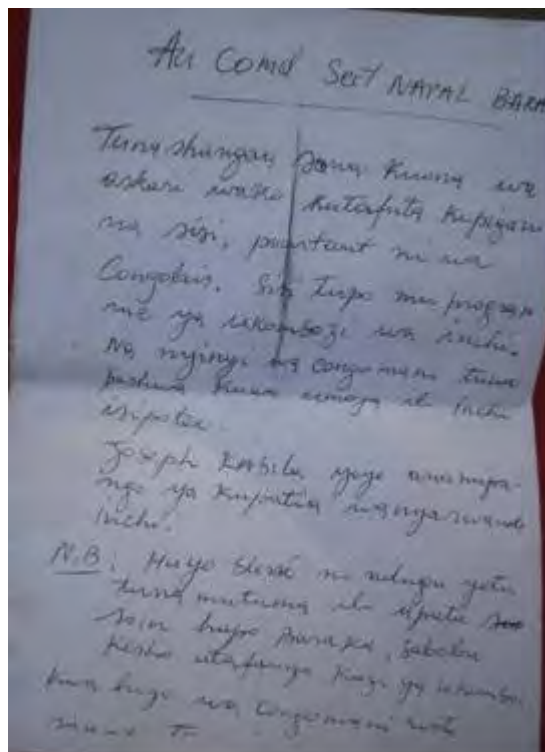 Au Comd Sect NAVAL BARA
Tuna shangau sana kuona wa
askari wako kutafuta kupigana
na sisi, pourtant ni wa
Congolais. Sisi tupo mu program
me ya ukombozi wa inchi.
Na nyinyi wa congomani tuna
pashwa kuwa umoja ili inchi
isipotee.
Joseph KABILA yeye ana mipa-
ngo ya kupatia wanyarwanda
inchi.
N.B : Huyo blessé ni ndugu yetu
tuna mutuma ili apate
soin hapo Baraka, sababu
kesho utafanya kazi ya ukombo.
kwa hugo wa congomani